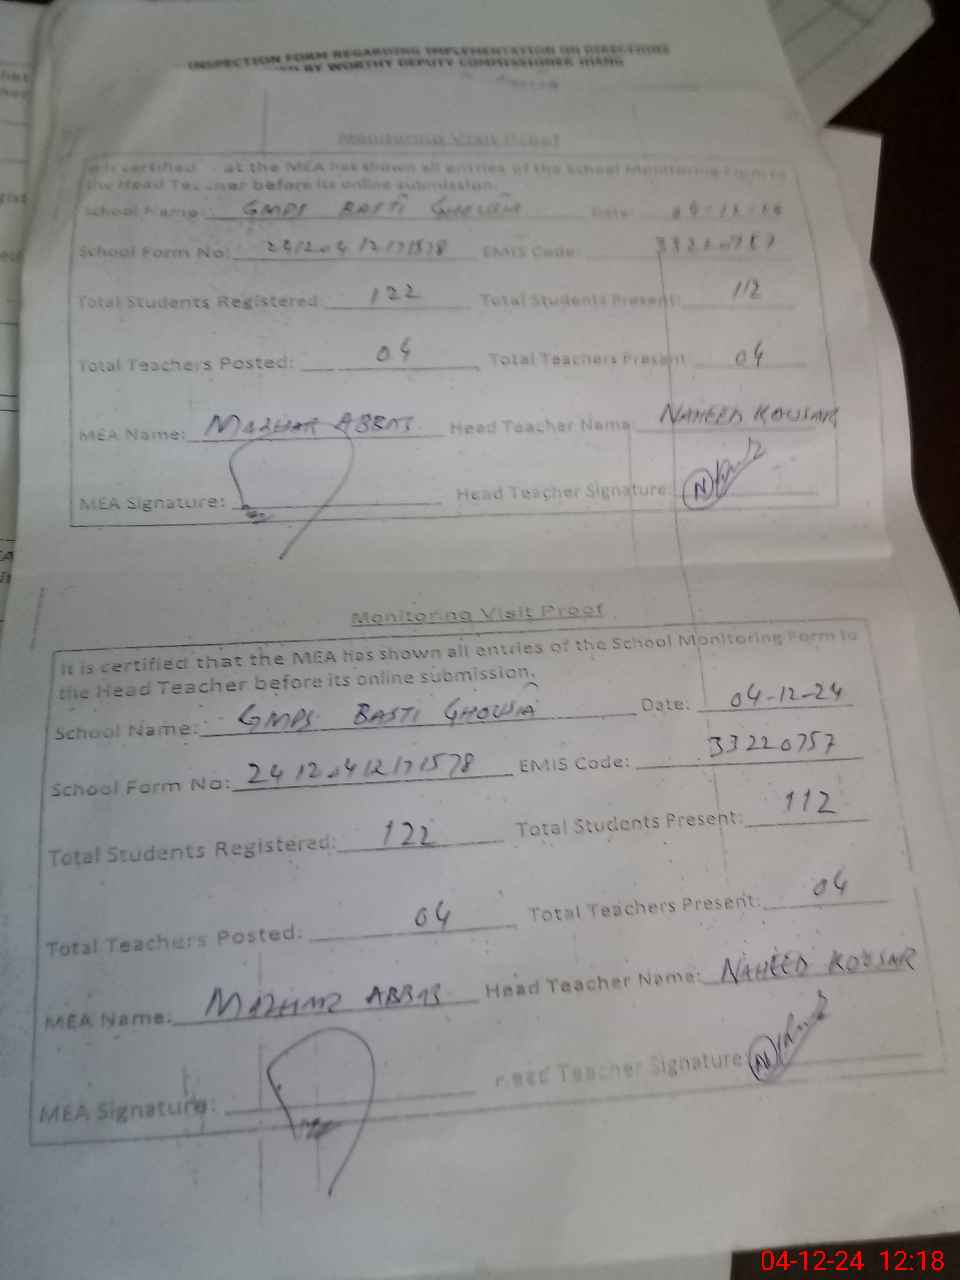 INSPECTION FORM REGARDING IMPLEMENTATION ON DIRECTIONS
BY WORTHY DEPUTY COMMISSIONER JHANG
Monitoring Visit Proof
certified at the MEA has shown all entries of the School Monitoring Form to
the Head Teacher before its online submission.
School Name: GMPS BASTI GHOUSIA Date:
School Form No: 24120412171578 EMIS Code: 33220757
Total Students Registered: 122 Total Students Present: 112
Total Teachers Posted: 04 Total Teachers Present: 04
MEA Name: MAZHAR ABBAS Head Teacher Name: NAHEED KOUSAR
MEA Signature: Head Teacher Signature:
Monitoring Visit Proof
It is certified that the MEA has shown all entries of the School Monitoring Form to
the Head Teacher before its online submission.
School Name: GMPS BASTI GHOUSIA Date: 04-12-24
School Form No: 24120412171578 EMIS Code: 33220757
Total Students Registered: 122 Total Students Present: 112
Total Teachers Posted: 04 Total Teachers Present: 04
MEA Name: MAZHAR ABBAS Head Teacher Name: NAHEED KOUSAR
MEA Signature: Head Teacher Signature:
04-12-24 12:18